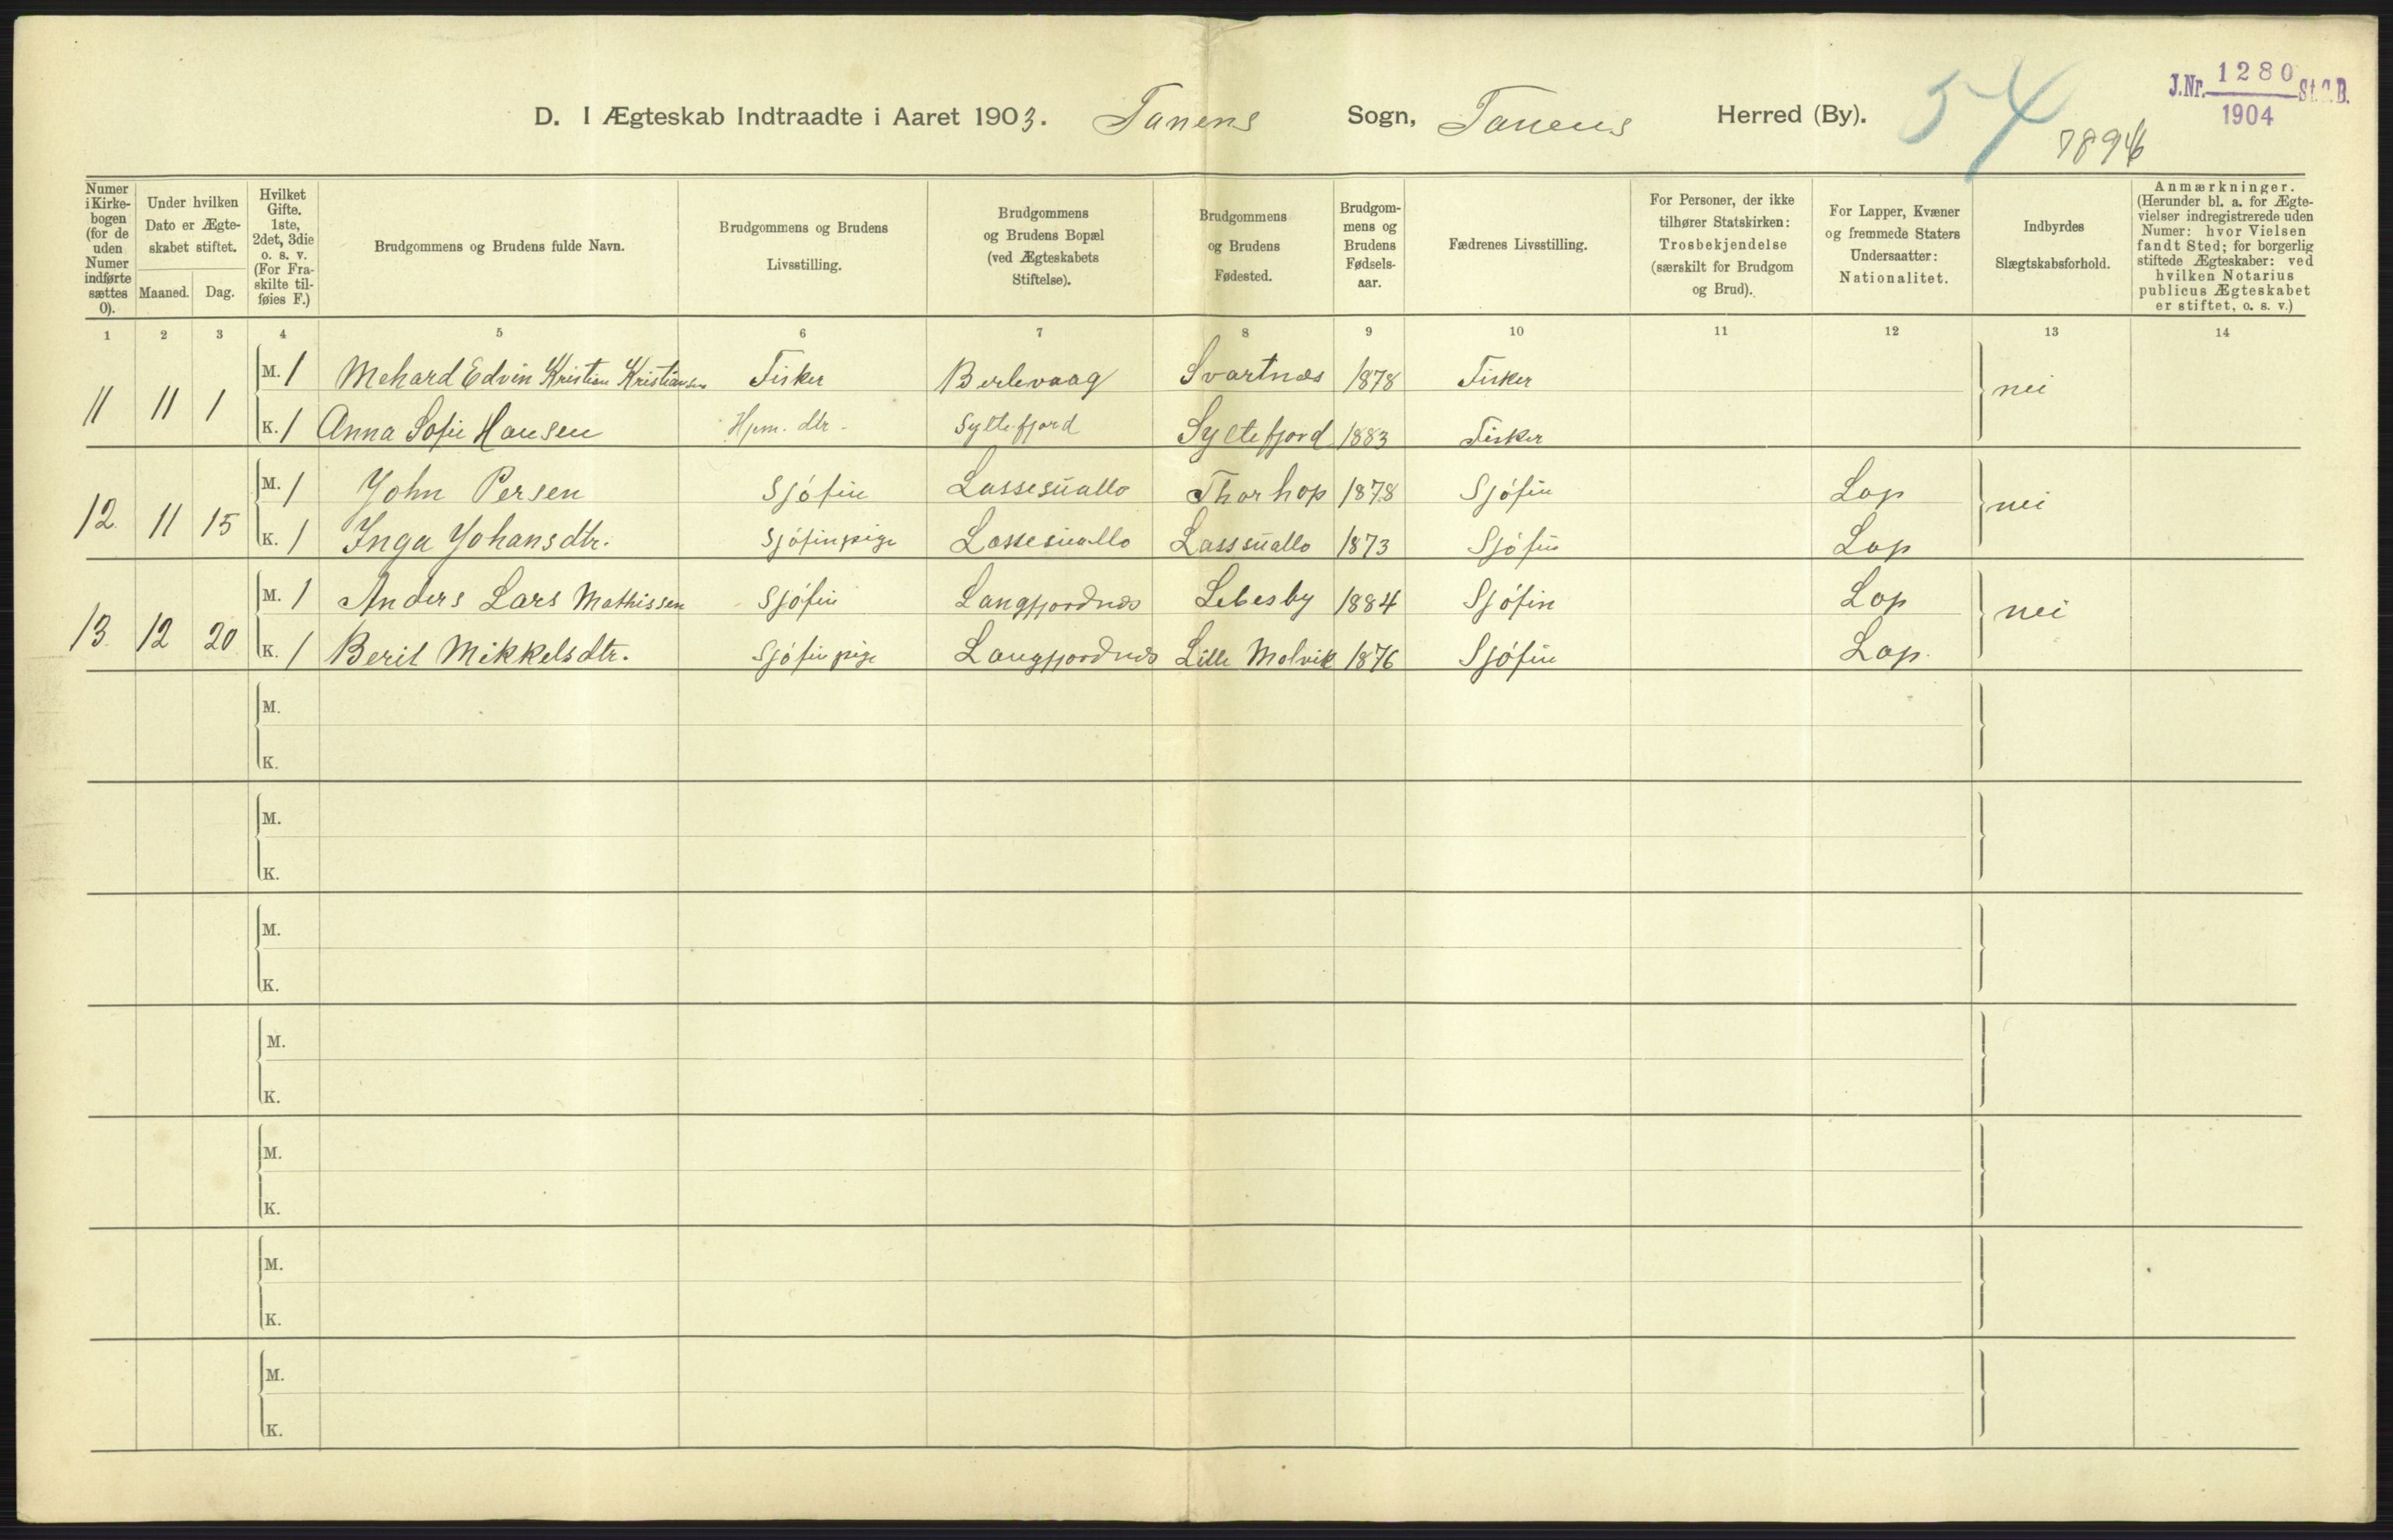 D. I Ægteskab Indtraadte i Aaret 1903. Tanens Sogn, Tanens Herred (By).
54
J.Nr. 1280 St.C.B.
1904
Numer i Kirkebogen (for de uden Numer indførte sættes 0).
Under hvilken Dato er Ægteskabet stiftet.
Maaned. Dag.
Hvilket Gifte. 1ste, 2det, 3die o. s. v. (For Fraskilte tilføies F.)
Brudgommens og Brudens fulde Navn.
Brudgommens og Brudens Livsstilling.
Brudgommens og Brudens Bopæl (ved Ægteskabets Stiftelse).
Brudgommens og Brudens Fødested.
Brudgommens og Brudens Fødselsaar.
Fædrenes Livsstilling.
For Personer, der ikke tilhører Statskirken: Trosbekjendelse (særskilt for Brudgom og Brud).
For Lapper, Kvæner og fremmede Staters Undersaatter: Nationalitet.
Indbyrdes Slægtskabsforhold.
Anmærkninger. (Herunder bl. a. for Ægtevielser indregistrerede uden Numer: hvor Vielsen fandt Sted; for borgerlig stiftede Ægteskaber: ved hvilken Notarius publicus Ægteskabet er stiftet, o. s. v.)
1 2 3 4 5 6 7 8 9 10 11 12 13 14
11 11 1 M. 1 Mehard Edvin Kristian Kristiansen Fisker Berlevaag Svartnæs 1878 Fisker nei
K. 1 Anna Sofie Hansen Hjem. dtr. Syltefjord Syltefjord 1883 Fisker
12 11 15 M. 1 John Persen Sjófin Lassesuallo Thorhop 1878 Sjófin Lap nei
K. 1 Inga Johansdtr. Sjófinpige Lassesuallo Lasssuallo 1873 Sjófin Lap
13 12 20 M. 1 Anders Lars Mathissen Sjófin Langfjordnæs Lebesby 1884 Sjófin Lap nei
K. 1 Berit Mikkelsdtr. Sjófinpige Langfjordnæs Lille Molvik 1876 Sjófin Lap.
M.
K.
M.
K.
M.
K.
M.
K.
M.
K.
M.
K.
M.
K.